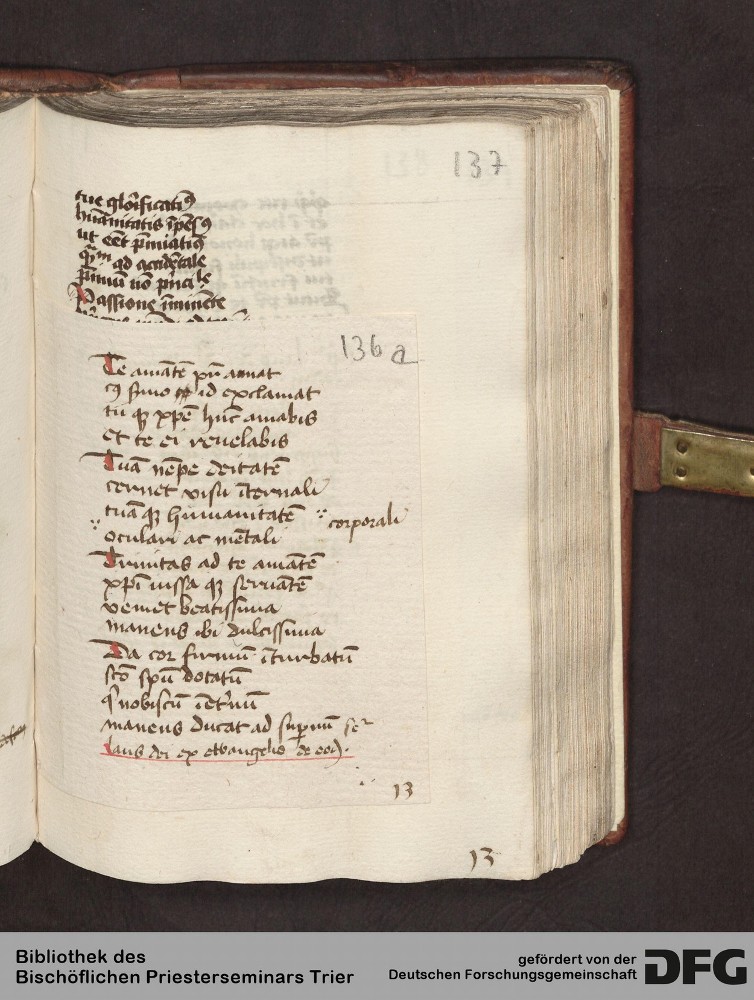 137
tue glorificatiōis
hūanitatis
ut eēt p̄miatiuꝰ
ad accidētale
p̄miuꝫ nō
Passione īminēte
136 a
Te amātē pr̄ amat
id exclamat
tu xp̄e hūc amabis
et te ei reuelabis
Tuā nēpe deitatē
cernet visu īternali
tuāqꝫ humanitatē corporali
oculari ac mētali
Trinitas ad te amātē
xp̄i iussa qꝫ seruātē
veniet beatissima
manens ibi dulcissima
Da cor firmū īturbatū
sc̄o sp̄u dotatū
nobiscū īetnū
manens ducat ad supnū
Laus dei ex ewangelio de eod)
13
13
Bibliothek des
Bischöflichen Priesterseminars Trier
gefördert von der
Deutschen Forschungsgemeinschaft
DFG